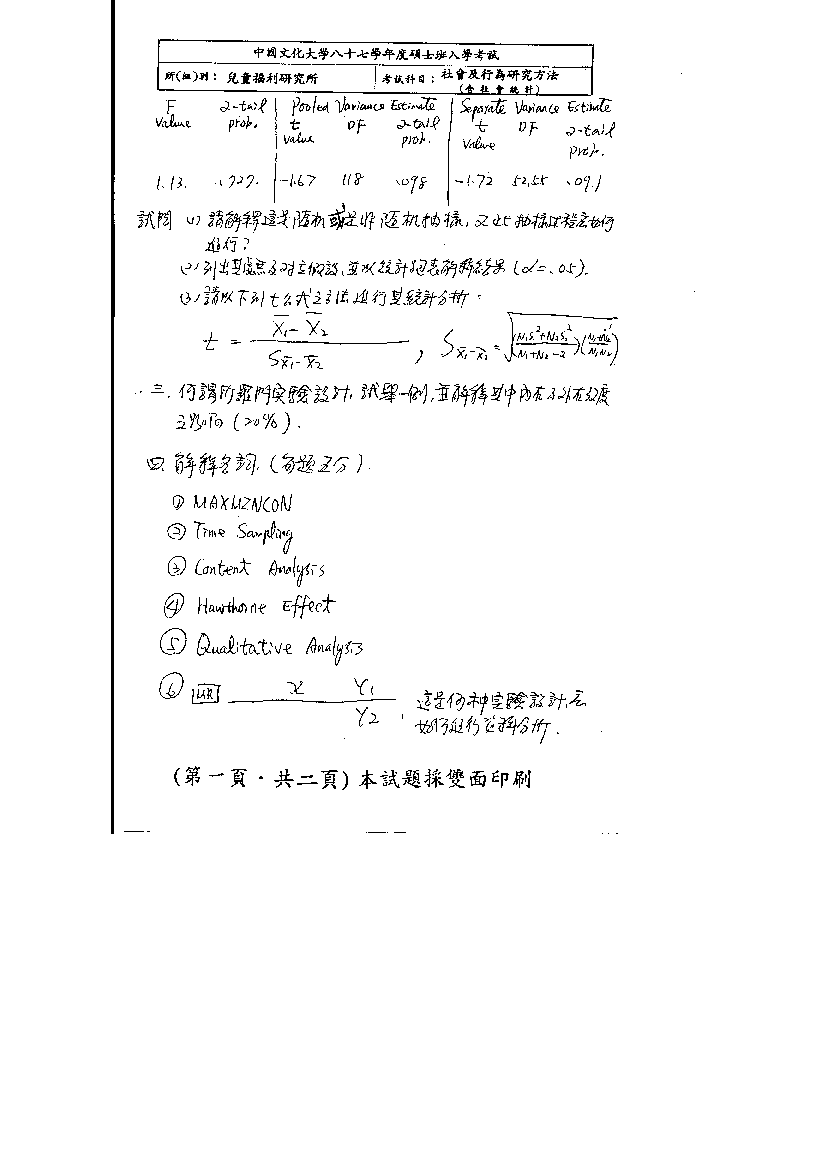 中國文化大學八十七學年度碩士班入學考試
所(組)別：兒童福利研究所 考試科目：社會及行為研究方法
(含社會統計)
F Value 2-tail prob. Pooled Variance Estimate t Value DF 2-tail prob. Separate Variance Estimate t Value DF 2-tail prob.
1.13. .727. -1.67 118 .098 -1.72 52.55 .091
試問 (1) 請解釋這是随机或是非随机抽樣，又此抽樣過程應如何
進行？
(2) 列出其虛無及對立假設，並以統計報表解釋結果 (α=.05).
(3) 請以下列 t 公式之方法進行其統計分析。
t = X̄₁ - X̄₂ / S X̄₁-X̄₂ , S X̄₁-X̄₂ = √((N₁S₁²+N₂S₂²)/(N₁+N₂-2))((N₁+N₂)/(N₁N₂))
三. 何謂所羅門實驗設計，試舉一例，並解釋其中內在及外在效度
之影响 (20%).
四. 解釋名詞. (每題五分).
① MAXMINCON
② Time Sampling
③ Content Analysis
④ Hawthorne Effect
⑤ Qualitative Analysis
⑥ MR X Y1
Y2 , 這是何种實驗設計，應
如何進行資料分析.
(第一頁・共二頁) 本試題採雙面印刷